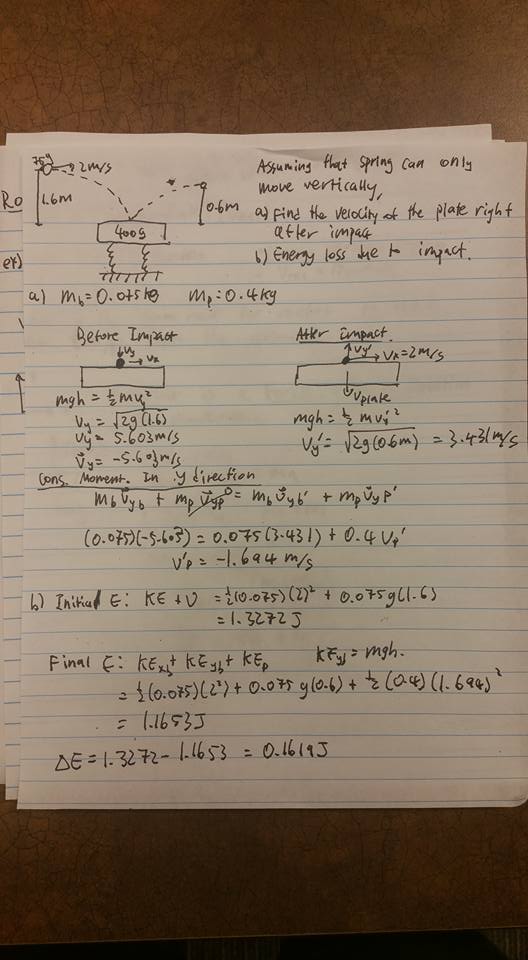 Ro
ex)
75g
2m/s
1.6m
0.6m
400g
Assuming that spring can only
move vertically,
a) Find the velocity of the plate right
after impact
b) Energy loss due to impact.
a) mb=0.075kg mp=0.4kg
Before Impact
Vy
Vx
mgh = ½mvy²
Vy = √2g(1.6)
Vy = 5.603m/s
V⃗y = -5.603m/s
After Impact.
Vy'
Vx=2m/s
Vplate
mgh = ½ mvy'²
Vy' = √2g(0.6m) = 3.431m/s
Cons. Moment. In y direction
mb v⃗yb + mp v⃗yp⁰ = mb v⃗yb' + mp v⃗yp'
(0.075)(-5.603) = 0.075(3.431) + 0.4 Vp'
V'p = -1.694 m/s
b) Initial E: KE + U = ½(0.075)(2)² + 0.075g(1.6)
= 1.3272J
Final E: KExb + KEyb + KEp KEyb = mgh.
= ½(0.075)(2²) + 0.075 g(0.6) + ½(0.4)(1.694)²
= 1.1653J
ΔE = 1.3272 - 1.1653 = 0.1619J